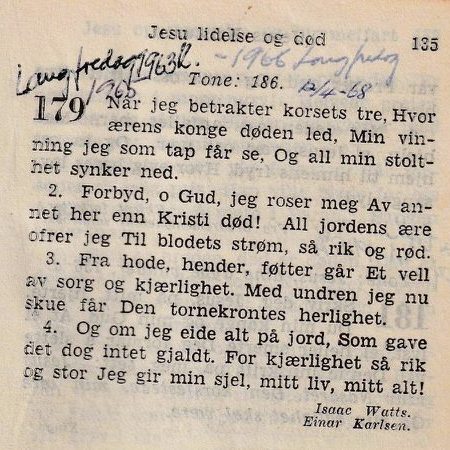 Jesu lidelse og død 135
Langfredag 1963 - 1966 Langfredag
1965 Tone: 186. 12/4-68
179 Når jeg betrakter korsets tre, Hvor
ærens konge døden led, Min vin-
ning jeg som tap får se, Og all min stolt-
het synker ned.
2. Forbyd, o Gud, jeg roser meg Av an-
net her enn Kristi død! All jordens ære
ofrer jeg Til blodets strøm, så rik og rød.
3. Fra hode, hender, føtter går Et vell
av sorg og kjærlighet. Med undren jeg nu
skue får Den tornekrontes herlighet.
4. Og om jeg eide alt på jord, Som gave
det dog intet gjaldt. For kjærlighet så rik
og stor Jeg gir min sjel, mitt liv, mitt alt!
Isaac Watts.
Einar Karlsen.